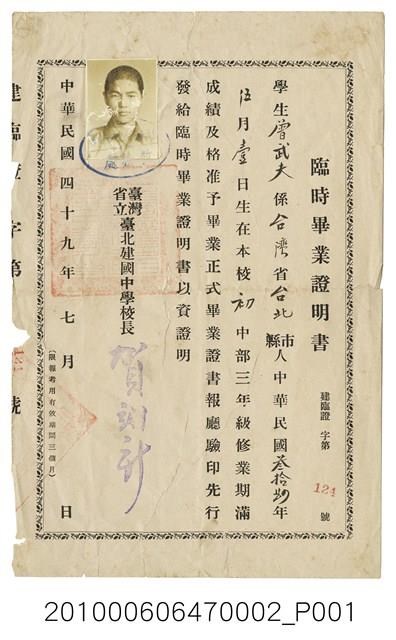 臨時畢業證明書
建臨證 字第 124 號
學生曾武夫係台灣省台北縣市人中華民國叁拾四年
伍月壹日生在本校初中部三年級修業期滿
成績及格准予畢業正式畢業證書報廳驗印先行
發給臨時畢業證明書以資證明
臺灣省立臺北建國中學校長 賀翊新
中華民國四十九年七月 日
(限報考用有效期間三個月)
建臨證字第 號
201000606470002_P001